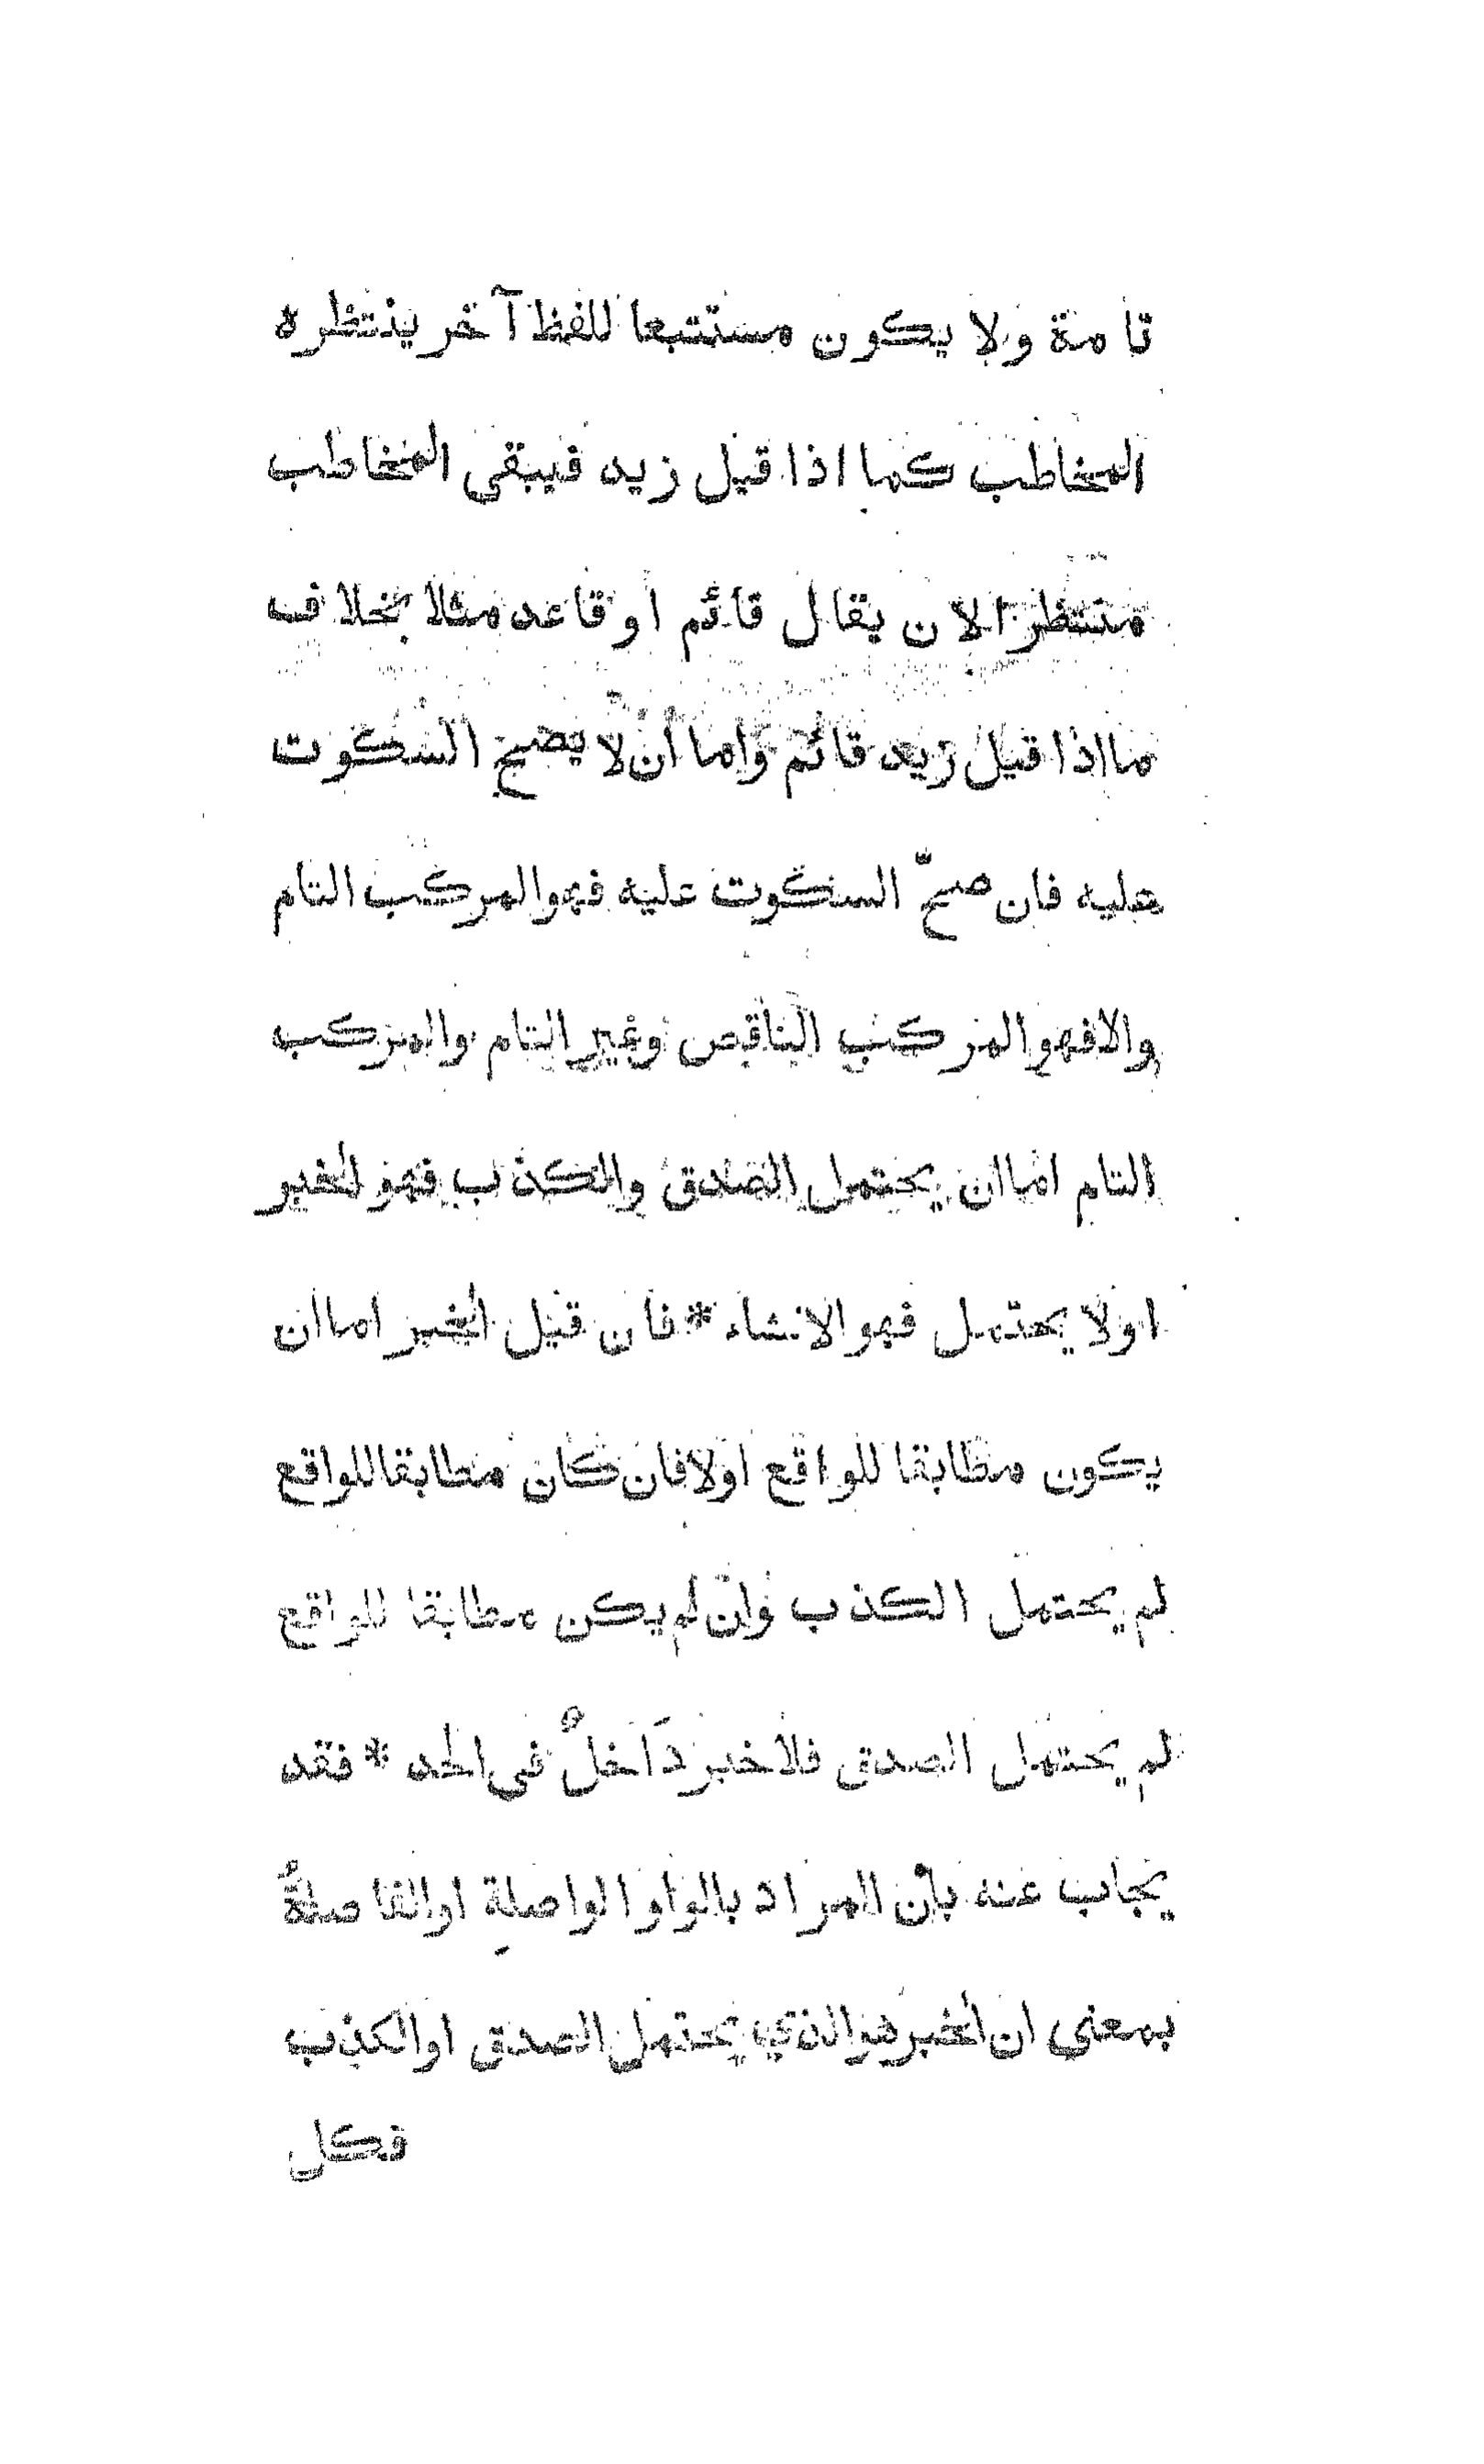 تامة ولا يكون مستتبعا للفظ آخر ينتظره
المخاطب كما اذا قيل زيد فيبقى المخاطب
منتظرا لان يقال قائم او قاعد مثلا بخلاف
ما اذا قيل زيد قائم واما ان لا يصح السكوت
عليه فان صحّ السكوت عليه فهو المركب التام
والا فهو المركب الناقص وغير التام والمركب
التام اما ان يحتمل الصدق والكذب فهو الخبر
او لا يحتمل فهو الانشاء * فان قيل الخبر اما ان
يكون مطابقا للواقع اولا فان كان مطابقا للواقع
لم يحتمل الكذب وان لم يكن مطابقا للواقع
لم يحتمل الصدق فلا خبر دَاخلٌ في الحد * فقد
يجاب عنه بان المراد بالواو الواصلةِ او الفاصلةُ
بمعنى ان الخبر هو الذي يحتمل الصدق او الكذب
فكل